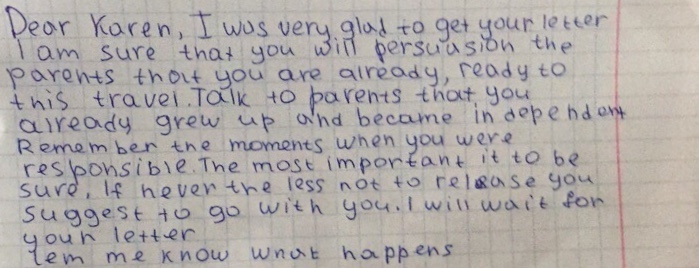 Dear Karen, I was very glad to get your letter
I am sure that you will persuasion the
parents that you are already, ready to
this travel. Talk to parents that you
already grew up and became independent
Remember the moments when you were
responsible. The most important it to be
sure, If never the less not to release you
suggest to go with you. I will wait for
your letter
Tem me know what happens